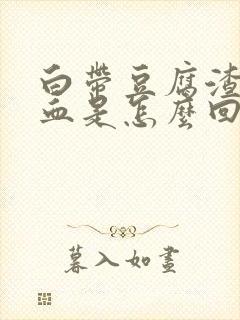 白帶豆腐渣
血是怎麼回
暮入如畫